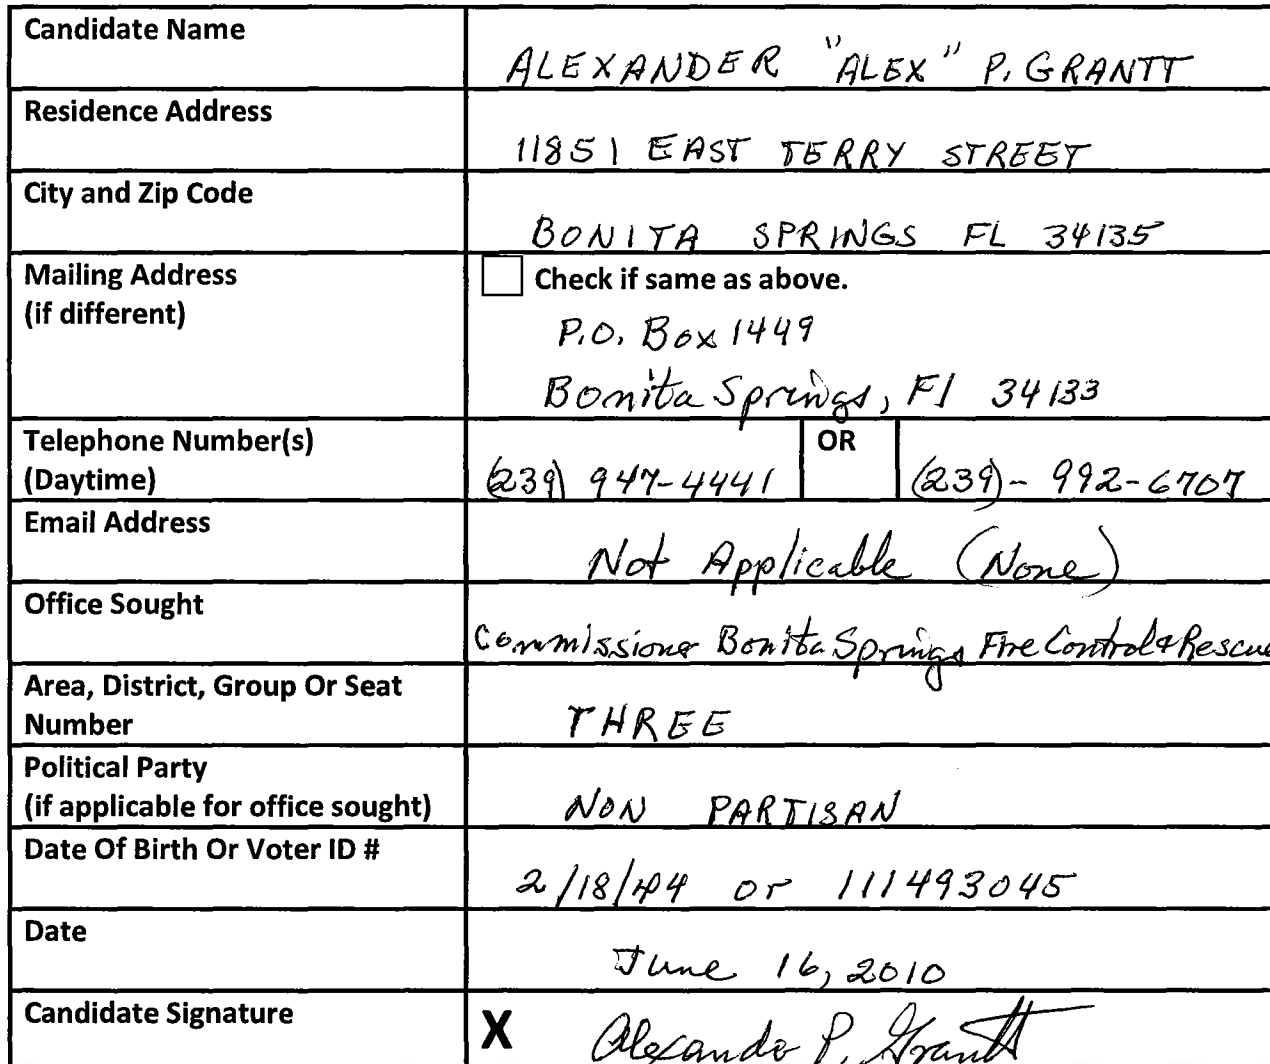 Candidate Name
ALEXANDER "ALEX" P. GRANTT
Residence Address
11851 EAST TERRY STREET
City and Zip Code
BONITA SPRINGS FL 34135
Mailing Address
(if different)
Check if same as above.
P.O. Box 1449
Bonita Springs, Fl 34133
Telephone Number(s)
(Daytime)
(239) 947-4441 OR (239)- 992-6707
Email Address
Not Applicable (None)
Office Sought
Commissioner Bonita Springs Fire Control & Rescue
Area, District, Group Or Seat
Number
THREE
Political Party
(if applicable for office sought)
NON PARTISAN
Date Of Birth Or Voter ID #
2/18/44 or 111493045
Date
June 16, 2010
Candidate Signature
X Alexander P. Grantt